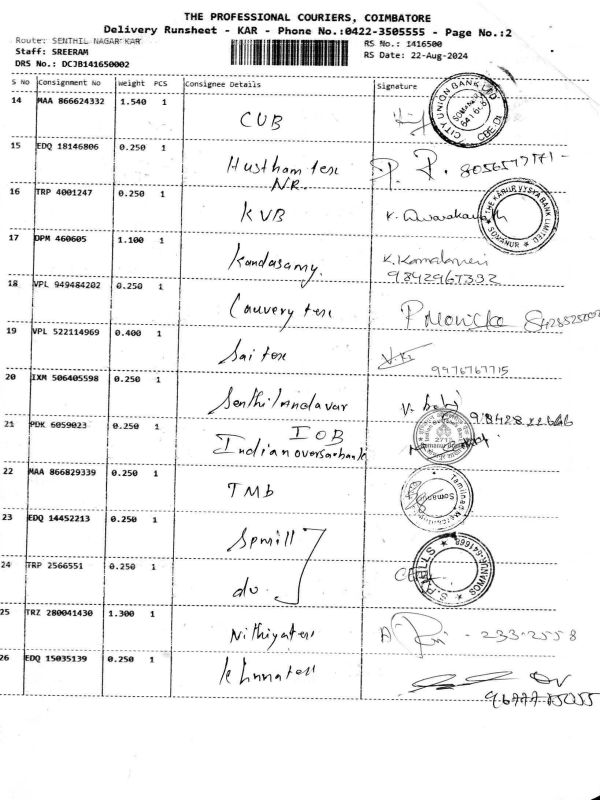 THE PROFESSIONAL COURIERS, COIMBATORE
Delivery Runsheet - KAR - Phone No.:0422-3505555 - Page No.:2
Route: SENTHIL NAGAR KAR
Staff: SREERAM
DRS No.: DCJB141650002
RS No.: 1416500
RS Date: 22-Aug-2024
S No Consignment No Weight PCS Consignee Details Signature
14 MAA 866624332 1.540 1 CUB
CITY UNION BANK LTD
15 EDQ 18146806 0.250 1
N.R.
16 TRP 4001247 0.250 1 KVB
THE KARUR VYSYA BANK LIMITED
SOMANUR
17 DPM 460605 1.100 1 Kandasamy.
9842967392
18 VPL 949484202 0.250 1 Cauvery tex
19 VPL 522114969 0.400 1 Sai tex
9976767715
20 IXM 506405598 0.250 1
21 PDK 6059023 0.250 1 IOB
Indian overseabank
22 MAA 866829339 0.250 1 TMB
23 EDQ 14452213 0.250 1 Spmill
24 TRP 2566551 0.250 1 do
25 TRZ 280041430 1.300 1
233-2558
26 EDQ 15035139 0.250 1